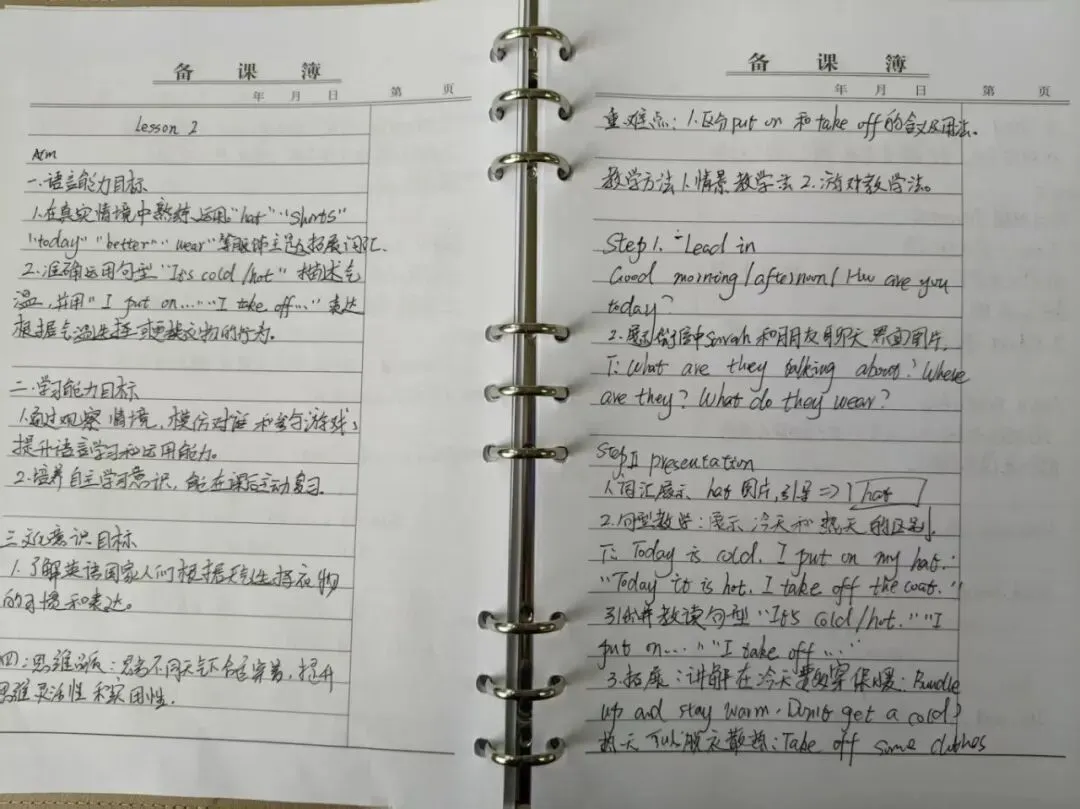 备课簿
年 月 日 第 页
Lesson 2
Aim
一.语言能力目标
1.在真实情境中熟练运用"hat" "shorts"
"today" "better" "wear"等服饰主题拓展词汇.
2.准确运用句型"It's cold/hot"描述气
温,并用"I put on....""I take off..."表达
根据气温选择或更换衣物的行为.
二.学习能力目标
1.通过观察情境,模仿对话和参与游戏,
提升语言学习和运用能力.
2.培养自主学习意识,能在课后主动复习.
三.文化意识目标
1.了解英语国家人们根据天气选择衣物
的习惯和表达。
四:思维品质:思考不同天气下合适穿着,提升
思维灵活性和实用性.
备课簿
年 月 日 第 页
重难点:1.区分put on 和take off的含义及用法.
教学方法1.情景教学法 2.游戏教学法。
Step 1. Lead in
Good morning/afternoon/How are you
today?
2.展示 中Sarah和朋友聊天 界面图片.
T: What are they talking about? Where
are they? What do they wear?
Step II presentation
1.词汇展示 hat图片,引导⇒ hat
2.句型教学:展示冷天和热天的区别.
T: Today is cold. I put on my hat.
"Today it is hot. I take off the coat."
引出并教读句型"It's cold/hot.""I
put on....""I take off ...."
3.拓展:讲解在冷天要多穿保暖:Bundle
up and stay warm. Don't get a cold
热天可以脱衣散热:Take off some clothes